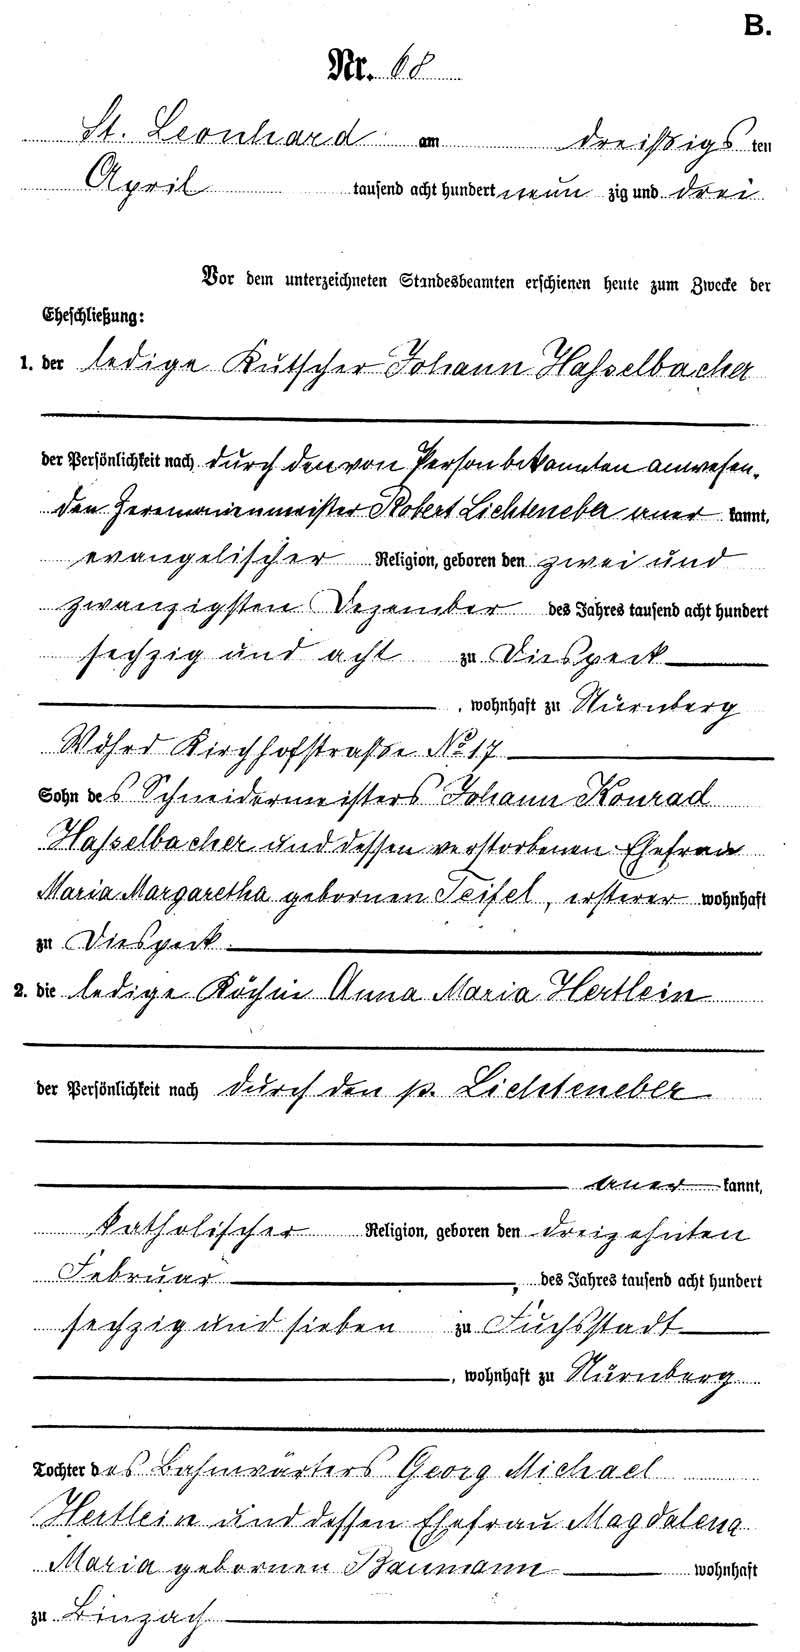 B.
Nr. 68
St. Leonhard am dreißigs ten
April tausend acht hundert neun zig und drei
Vor dem unterzeichneten Standesbeamten erschienen heute zum Zwecke der
Eheschließung:
1. der ledige Kutscher Johann Hasselbacher
der Persönlichkeit nach durch den von Person bekannten anwesen-
den Zeremonienmeister Robert Lichteneber aner kannt,
evangelischer Religion, geboren den zwei und
zwanzigsten Dezember des Jahres tausend acht hundert
sechzig und acht zu Diespeck
, wohnhaft zu Nürnberg
Wöhrd Kirchhofstraße No 17
Sohn des Schneidermeisters Johann Konrad
Hasselbacher und dessen verstorbenen Ehefrau
Maria Margaretha gebornen Teifel, ersterer wohnhaft
zu Diespeck
2. die ledige Köchin Anna Maria Hertlein
der Persönlichkeit nach durch den p. Lichteneber
aner kannt,
katholischer Religion, geboren den dreizehnten
Februar, des Jahres tausend acht hundert
sechzig und sieben zu Fuchsstadt
, wohnhaft zu Nürnberg
Tochter des Bahnwärters Georg Michael
Hertlein und dessen Ehefrau Magdalena
Maria gebornen Baumann wohnhaft
zu Binzach